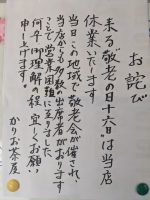 お詫び
来る"敬老の日十六日"は当店
休業いたします
当日この地域で敬老会が催され、
当店からも多数の出席者がおります
ことで営業困難に至りました
何卒御理解の程宜しくお願い
申し上げます。
かりお茶屋